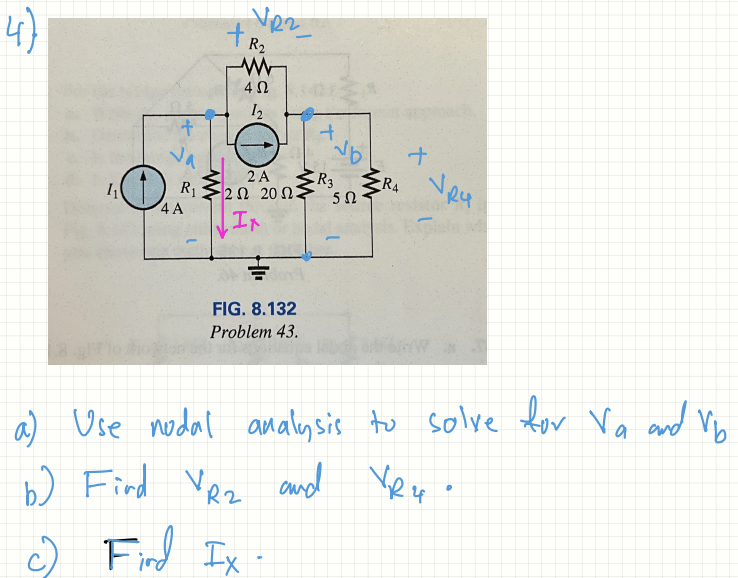 4)
+ VR2 -
R2
4 Ω
I2
+
+
Va
Vb
+
I1
R1
2 A
R3
R4
VR4
4 A
2 Ω
20 Ω
5 Ω
Ix
-
-
-
FIG. 8.132
Problem 43.
a) Use nodal analysis to solve for Va and Vb
b) Find VR2 and VR4.
c) Find Ix.